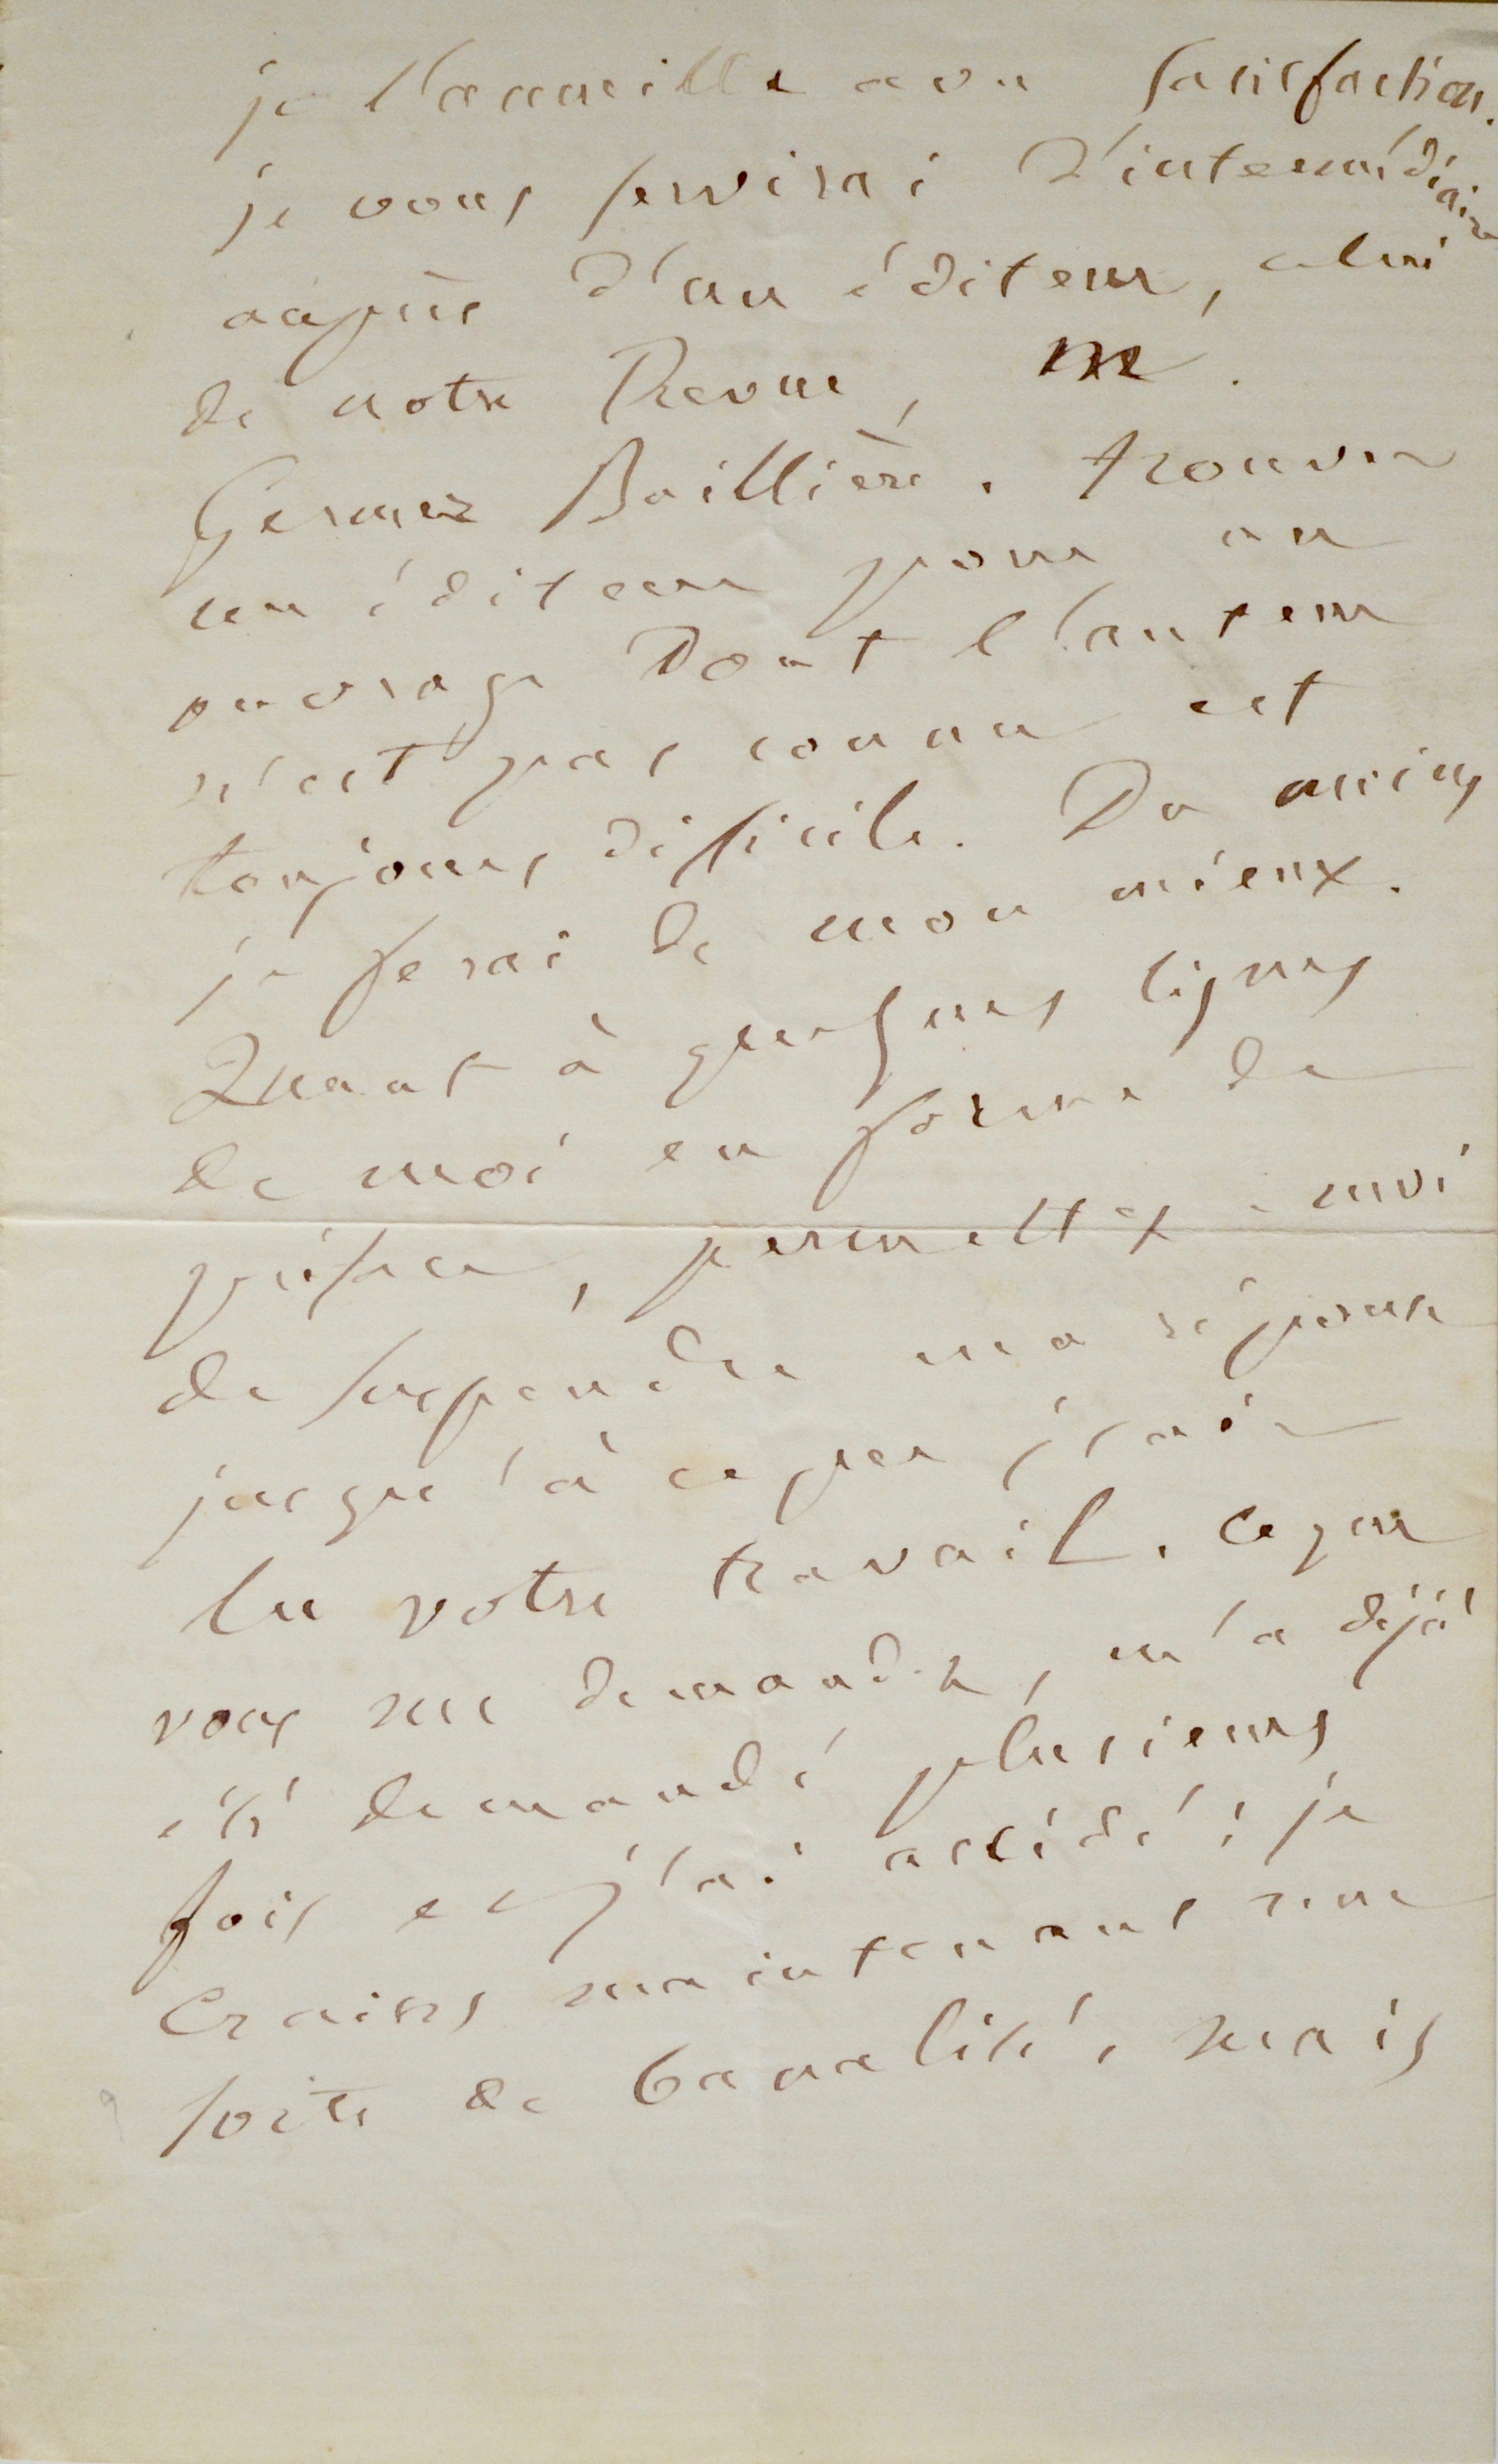 je l'accueille avec satisfaction.
je vous servirai d'intermédiaire
auprès d'un éditeur, celui
de notre Revue, M.
Germer Baillière. trouver
un éditeur pour un
ouvrage Dont l'auteur
n'est pas connu est
toujours difficile. Du moins
je ferai de mon mieux.
Quant à quelques lignes
de moi en forme de
préface, permettez-moi
de suspendre ma réponse
jusqu'à ce que j'aie
lu votre travail. Ce que
vous me demandez, m'a déjà
été demandé plusieurs
fois et j'ai accédé; je
crains maintenant une
sorte de banalité, mais